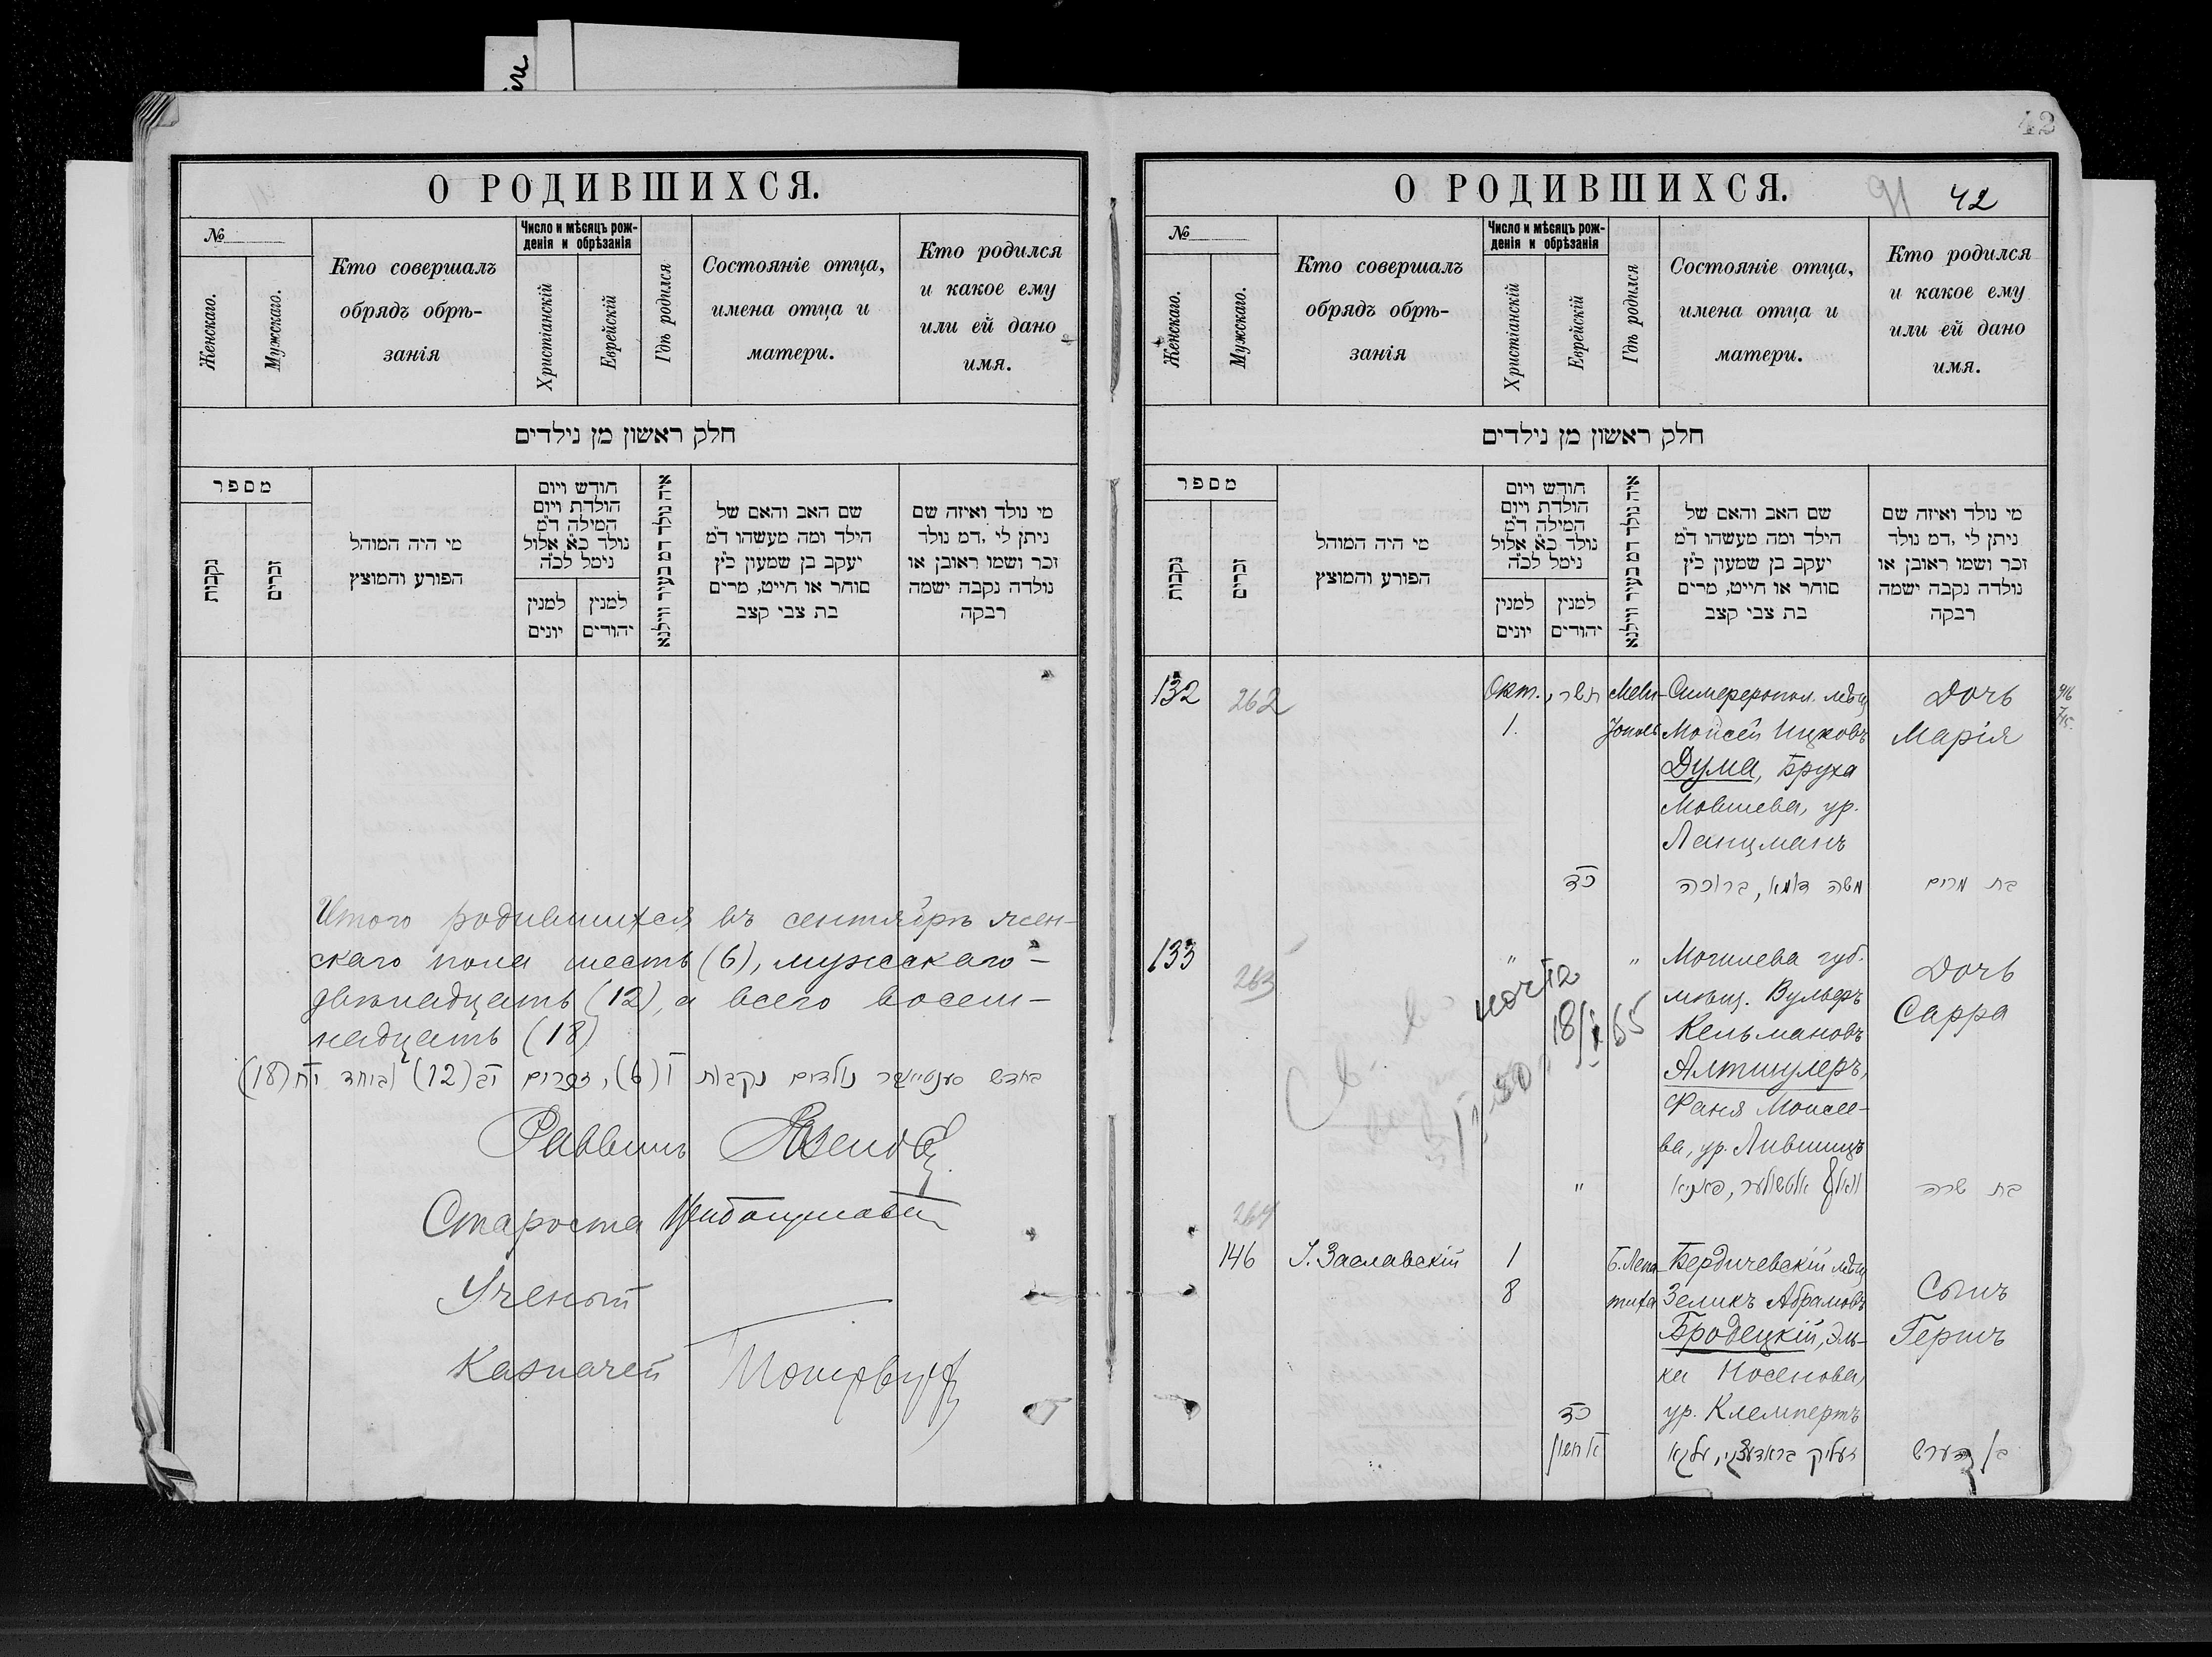 О РОДИВШИХСЯ.
№
Женскаго.
Мужскаго.
Кто совершалъ
обрядъ обрѣ-
занія
Число и мѣсяцъ рож-
денія и обрѣзанія
Христіанскій
Еврейскій
Гдѣ родился
Состояніе отца,
имена отца и
матери.
Кто родился
и какое ему
или ей дано
имя.
חלק ראשון מן נילדים
מספר
נקבות
זכרים
מי היה המוהל
הפורע והמוצץ
חודש ויום
הולדת ויום
המילה ד״מ
נולד כ״א אלול
נימל לכ״ה
למנין
יונים
למנין
יהודים
איה נולד דמ בעיר ווילנא
שם האב והאם של
הילד ומה מעשהו ד״מ
יעקב בן שמעון כ״ץ
סוחר או חייט, מרים
בת צבי קצב
מי נולד ואיזה שם
ניתן לי ,דמ נולד
זכר ושמו ראובן או
נולדה נקבה ישמה
רבקה
Итого родившихся въ сентябрѣ жен-
скаго пола шесть (6), мужскаго-
двѣнадцать (12), а всего восем-
надцать (18)
בחדש סענטיאבר נולדים נקבות ו (6), זכרים יב (12) וביחד יח (18)
Раввинъ
Староста
Ученый
Казначей
42
О РОДИВШИХСЯ.
91 42
№
Женскаго.
Мужскаго.
Кто совершалъ
обрядъ обрѣ-
занія
Число и мѣсяцъ рож-
денія и обрѣзанія
Христіанскій
Еврейскій
Гдѣ родился
Состояніе отца,
имена отца и
матери.
Кто родился
и какое ему
или ей дано
имя.
חלק ראשון מן נילדים
מספר
נקבות
זכרים
מי היה המוהל
הפורע והמוצץ
חודש ויום
הולדת ויום
המילה ד״מ
נולד כ״א אלול
נימל לכ״ה
למנין
יונים
למנין
יהודים
איה נולד דמ בעיר ווילנא
שם האב והאם של
הילד ומה מעשהו ד״מ
יעקב בן שמעון כ״ץ
סוחר או חייט, מרים
בת צבי קצב
מי נולד ואיזה שם
ניתן לי ,דמ נולד
זכר ושמו ראובן או
נולדה נקבה ישמה
רבקה
132 262 Окт. תשרי Мели- Симферопол. мѣщ Дочь
1. тополь Моисей Ицковъ Марія
Дума, Бруха
Мовшева, ур.
Ланцманъ
כד משה דומא, ברוכה בת מרים
133 263 " " Могилева губ. Дочь
мѣщ. Вульфъ Сарра
Кельмановъ
Алтшулеръ,
Фаня Моисее-
ва, ур. Лившицъ
18/I 65
" וואלף אלטשולער, פאניא בת שרה
264
146 І. Заславскій 1 Б. Лепа- Бердичевскій мѣщ Сынъ
8 тиха Зеликъ Абрамовъ Гершъ
Бродецкій, Эль-
каНосенова,
כד ур. Клемпертъ
א חשון זעליק בראדעצקי, עלקא בן הערש